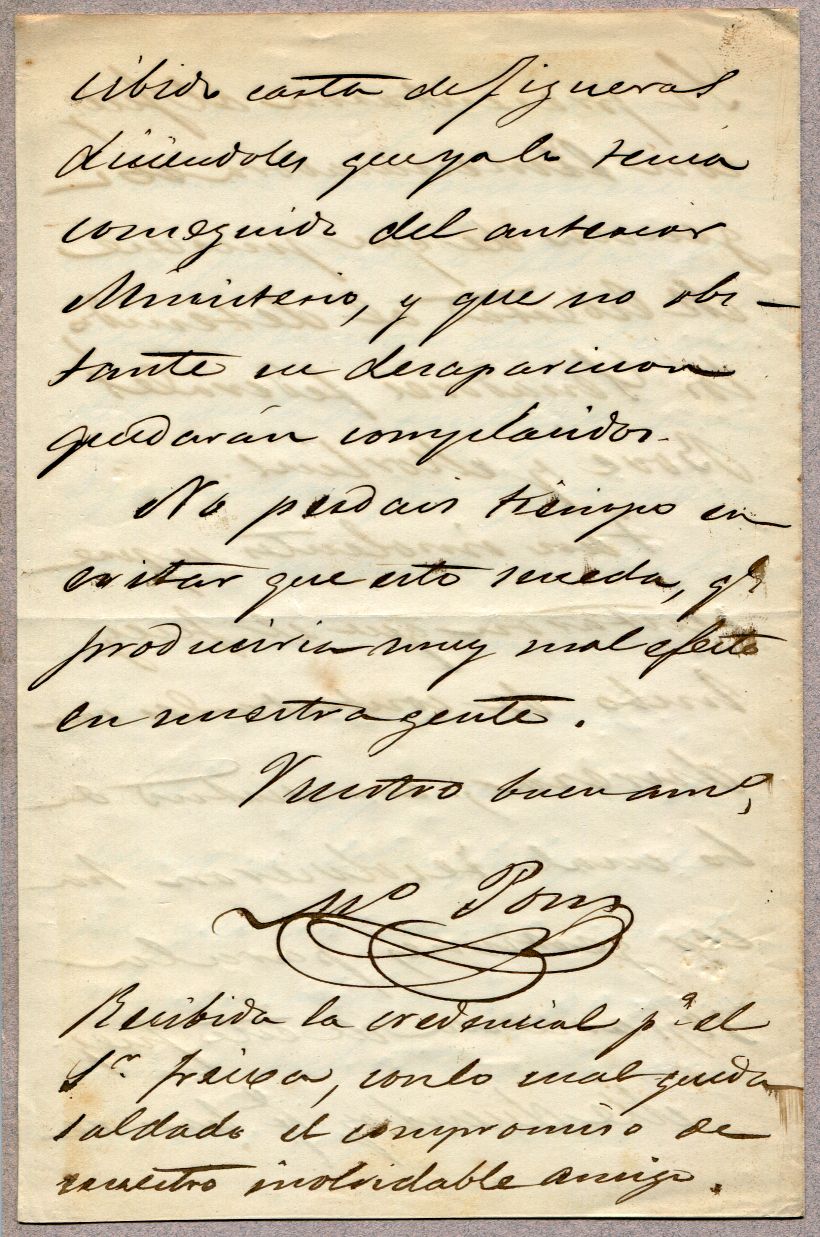 cibido carta de figueras
diciendoles que ya lo tenia
conseguido del anterior
Ministerio, y que no obs-
tante su desaparicion
quedarán complacidos.
No perdais tiempo en
evitar que esto suceda, q.e
produciria muy mal efecto
en nuestra gente.
Vuestro buen am.o,
Pons
Recibida la credencial p.a el
S.r freixa, con lo cual queda
saldado el compromiso de
nuestro inolvidable amigo.